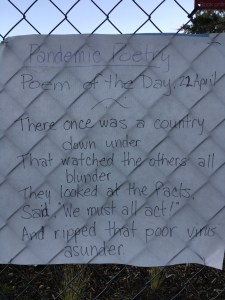 Pandemic Poetry
Poem of the Day, 22 April
There once was a country
down under
That watched the others all
blunder
They looked at the facts,
Said "We must all act!"
And ripped that poor virus
asunder